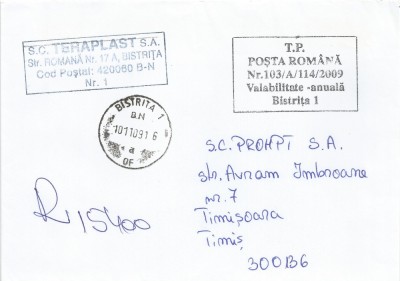 S.C. TERAPLAST S.A.
Str. ROMANĂ Nr. 17 A, BISTRIȚA
Cod Poștal: 420060 B-N
Nr. 1
T.P.
POȘTA ROMÂNĂ
Nr.103/A/114/2009
Valabilitate -anuală
Bistrița 1
BISTRITA 1
B.N
10110916
a
OF
S.C. PROMPT S.A.
str. Avram Imbroane
nr. 7
Timișoara
Timiș
300136
R 15400